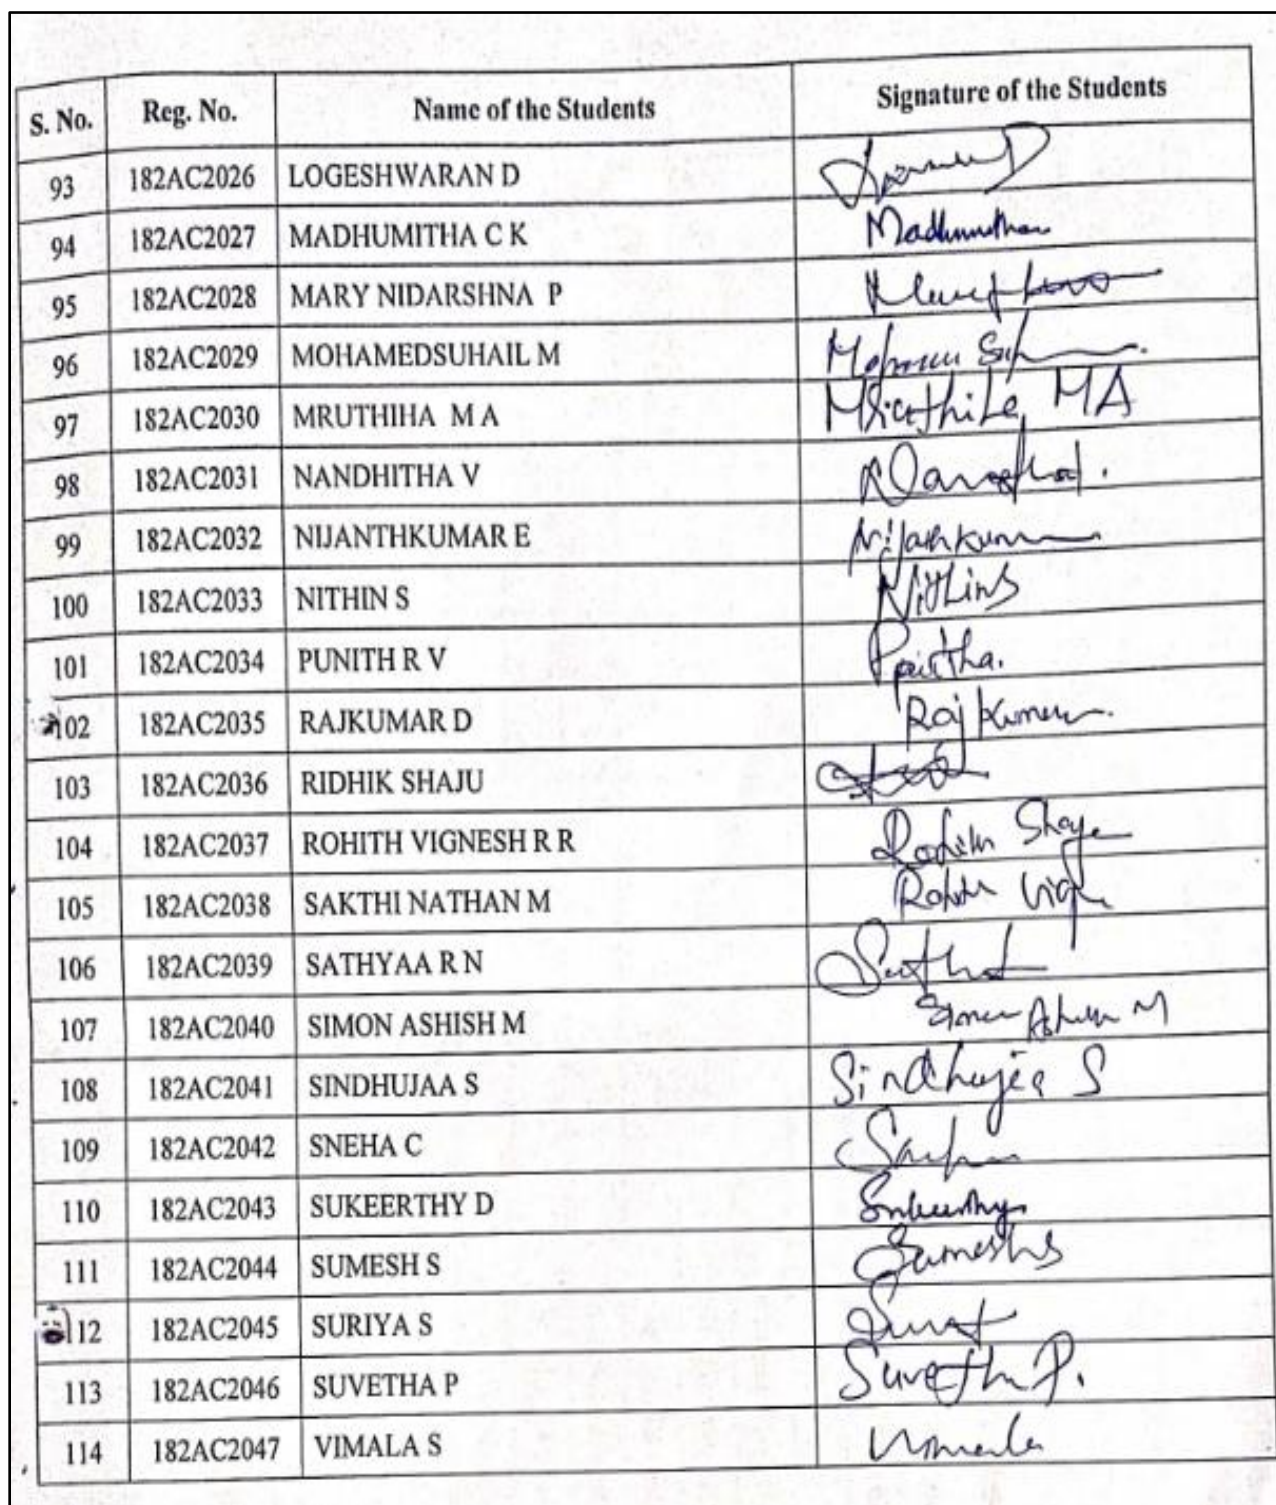 S. No. Reg. No. Name of the Students Signature of the Students
93 182AC2026 LOGESHWARAN D
94 182AC2027 MADHUMITHA C K Madhumitha
95 182AC2028 MARY NIDARSHNA P
96 182AC2029 MOHAMEDSUHAIL M
97 182AC2030 MRUTHIHA M A MA
98 182AC2031 NANDHITHA V
99 182AC2032 NIJANTHKUMAR E
100 182AC2033 NITHIN S Nithin S
101 182AC2034 PUNITH R V
102 182AC2035 RAJKUMAR D Rajkumar
103 182AC2036 RIDHIK SHAJU
104 182AC2037 ROHITH VIGNESH R R
105 182AC2038 SAKTHI NATHAN M
106 182AC2039 SATHYAA R N
107 182AC2040 SIMON ASHISH M M
108 182AC2041 SINDHUJAA S S
109 182AC2042 SNEHA C
110 182AC2043 SUKEERTHY D
111 182AC2044 SUMESH S Sumesh S
112 182AC2045 SURIYA S
113 182AC2046 SUVETHA P Suvetha P.
114 182AC2047 VIMALA S